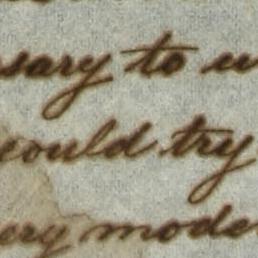 sary to u
could try
ery mode